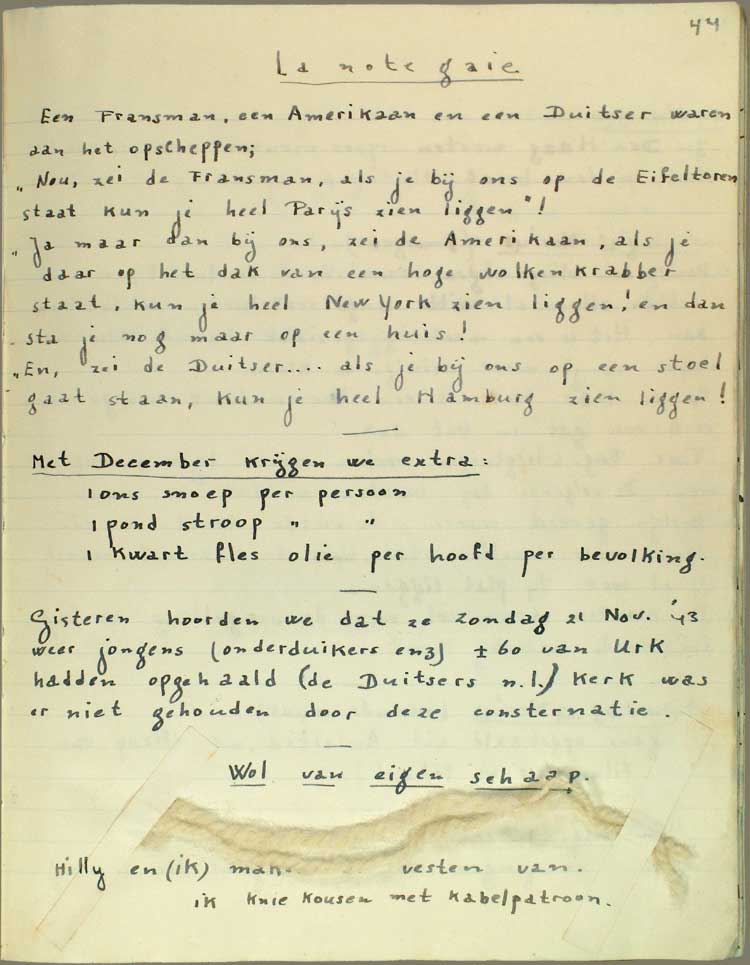 44
La note gaie
Een Fransman, een Amerikaan en een Duitser waren
aan het opscheppen;
„Nou, zei de Fransman, als je bij ons op de Eifeltoren
staat kun je heel Parijs zien liggen"!
„Ja maar dan bij ons, zei de Amerikaan, als je
daar op het dak van een hoge wolkenkrabber
staat, kun je heel New York zien liggen! en dan
sta je nog maar op een huis!
„En, zei de Duitser.... als je bij ons op een stoel
gaat staan, kun je heel Hamburg zien liggen!
Met December krijgen we extra:
1 ons snoep per persoon
1 pond stroop „ "
1 kwart fles olie per hoofd per bevolking.
Gisteren hoorden we dat ze zondag 21 Nov. '43
weer jongens (onderduikers enz) ± 60 van Urk
hadden opgehaald (de Duitsers n.l.) Kerk was
er niet gehouden door deze consternatie.
Wol van eigen schaap.
Hilly en (ik) mak vesten van.
ik knie kousen met kabelpatroon.